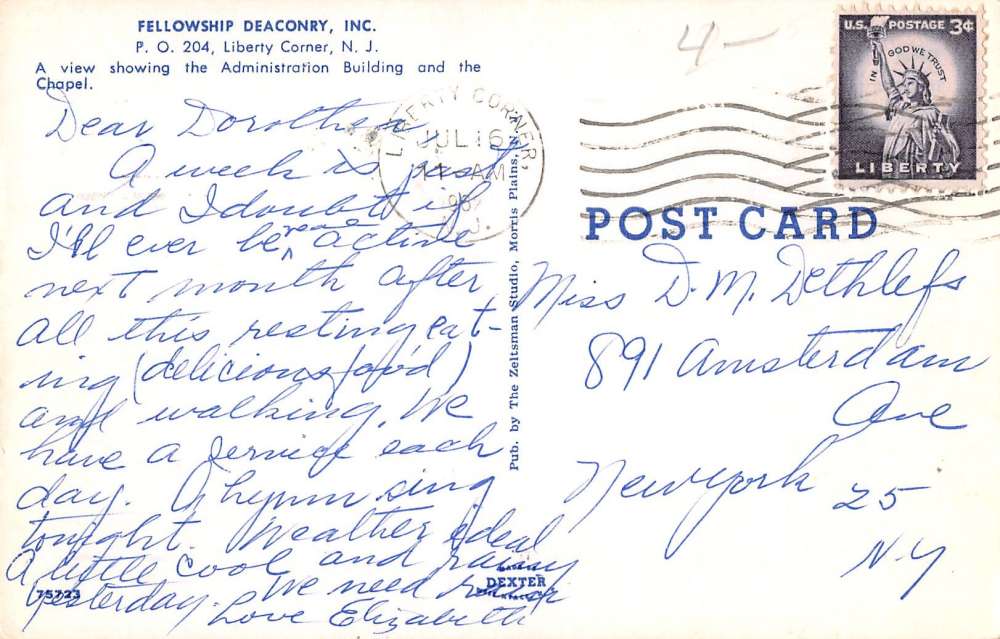 FELLOWSHIP DEACONRY, INC.
P. O. 204, Liberty Corner, N. J.
A view showing the Administration Building and the
Chapel.
4 —
U.S. POSTAGE 3¢
IN GOD WE TRUST
LIBERTY
LIBERTY CORNER,
JUL 16
AM
Dear Dorothea
A week is past
and I doubt if
I'll ever be active
next month after
all this resting, eat-
ing (delicious food)
and walking. We
have a service each
day. A hymn sing
tonight. Weather ideal
A little cool and rainy
yesterday. We need
Love Elizabeth
Pub. by The Zeltsman Studio, Morris Plains, N. J.
DEXTER
75723
POST CARD
Miss D. M. Dethlefs
891 Amsterdam
Ave
New York 25
N.Y